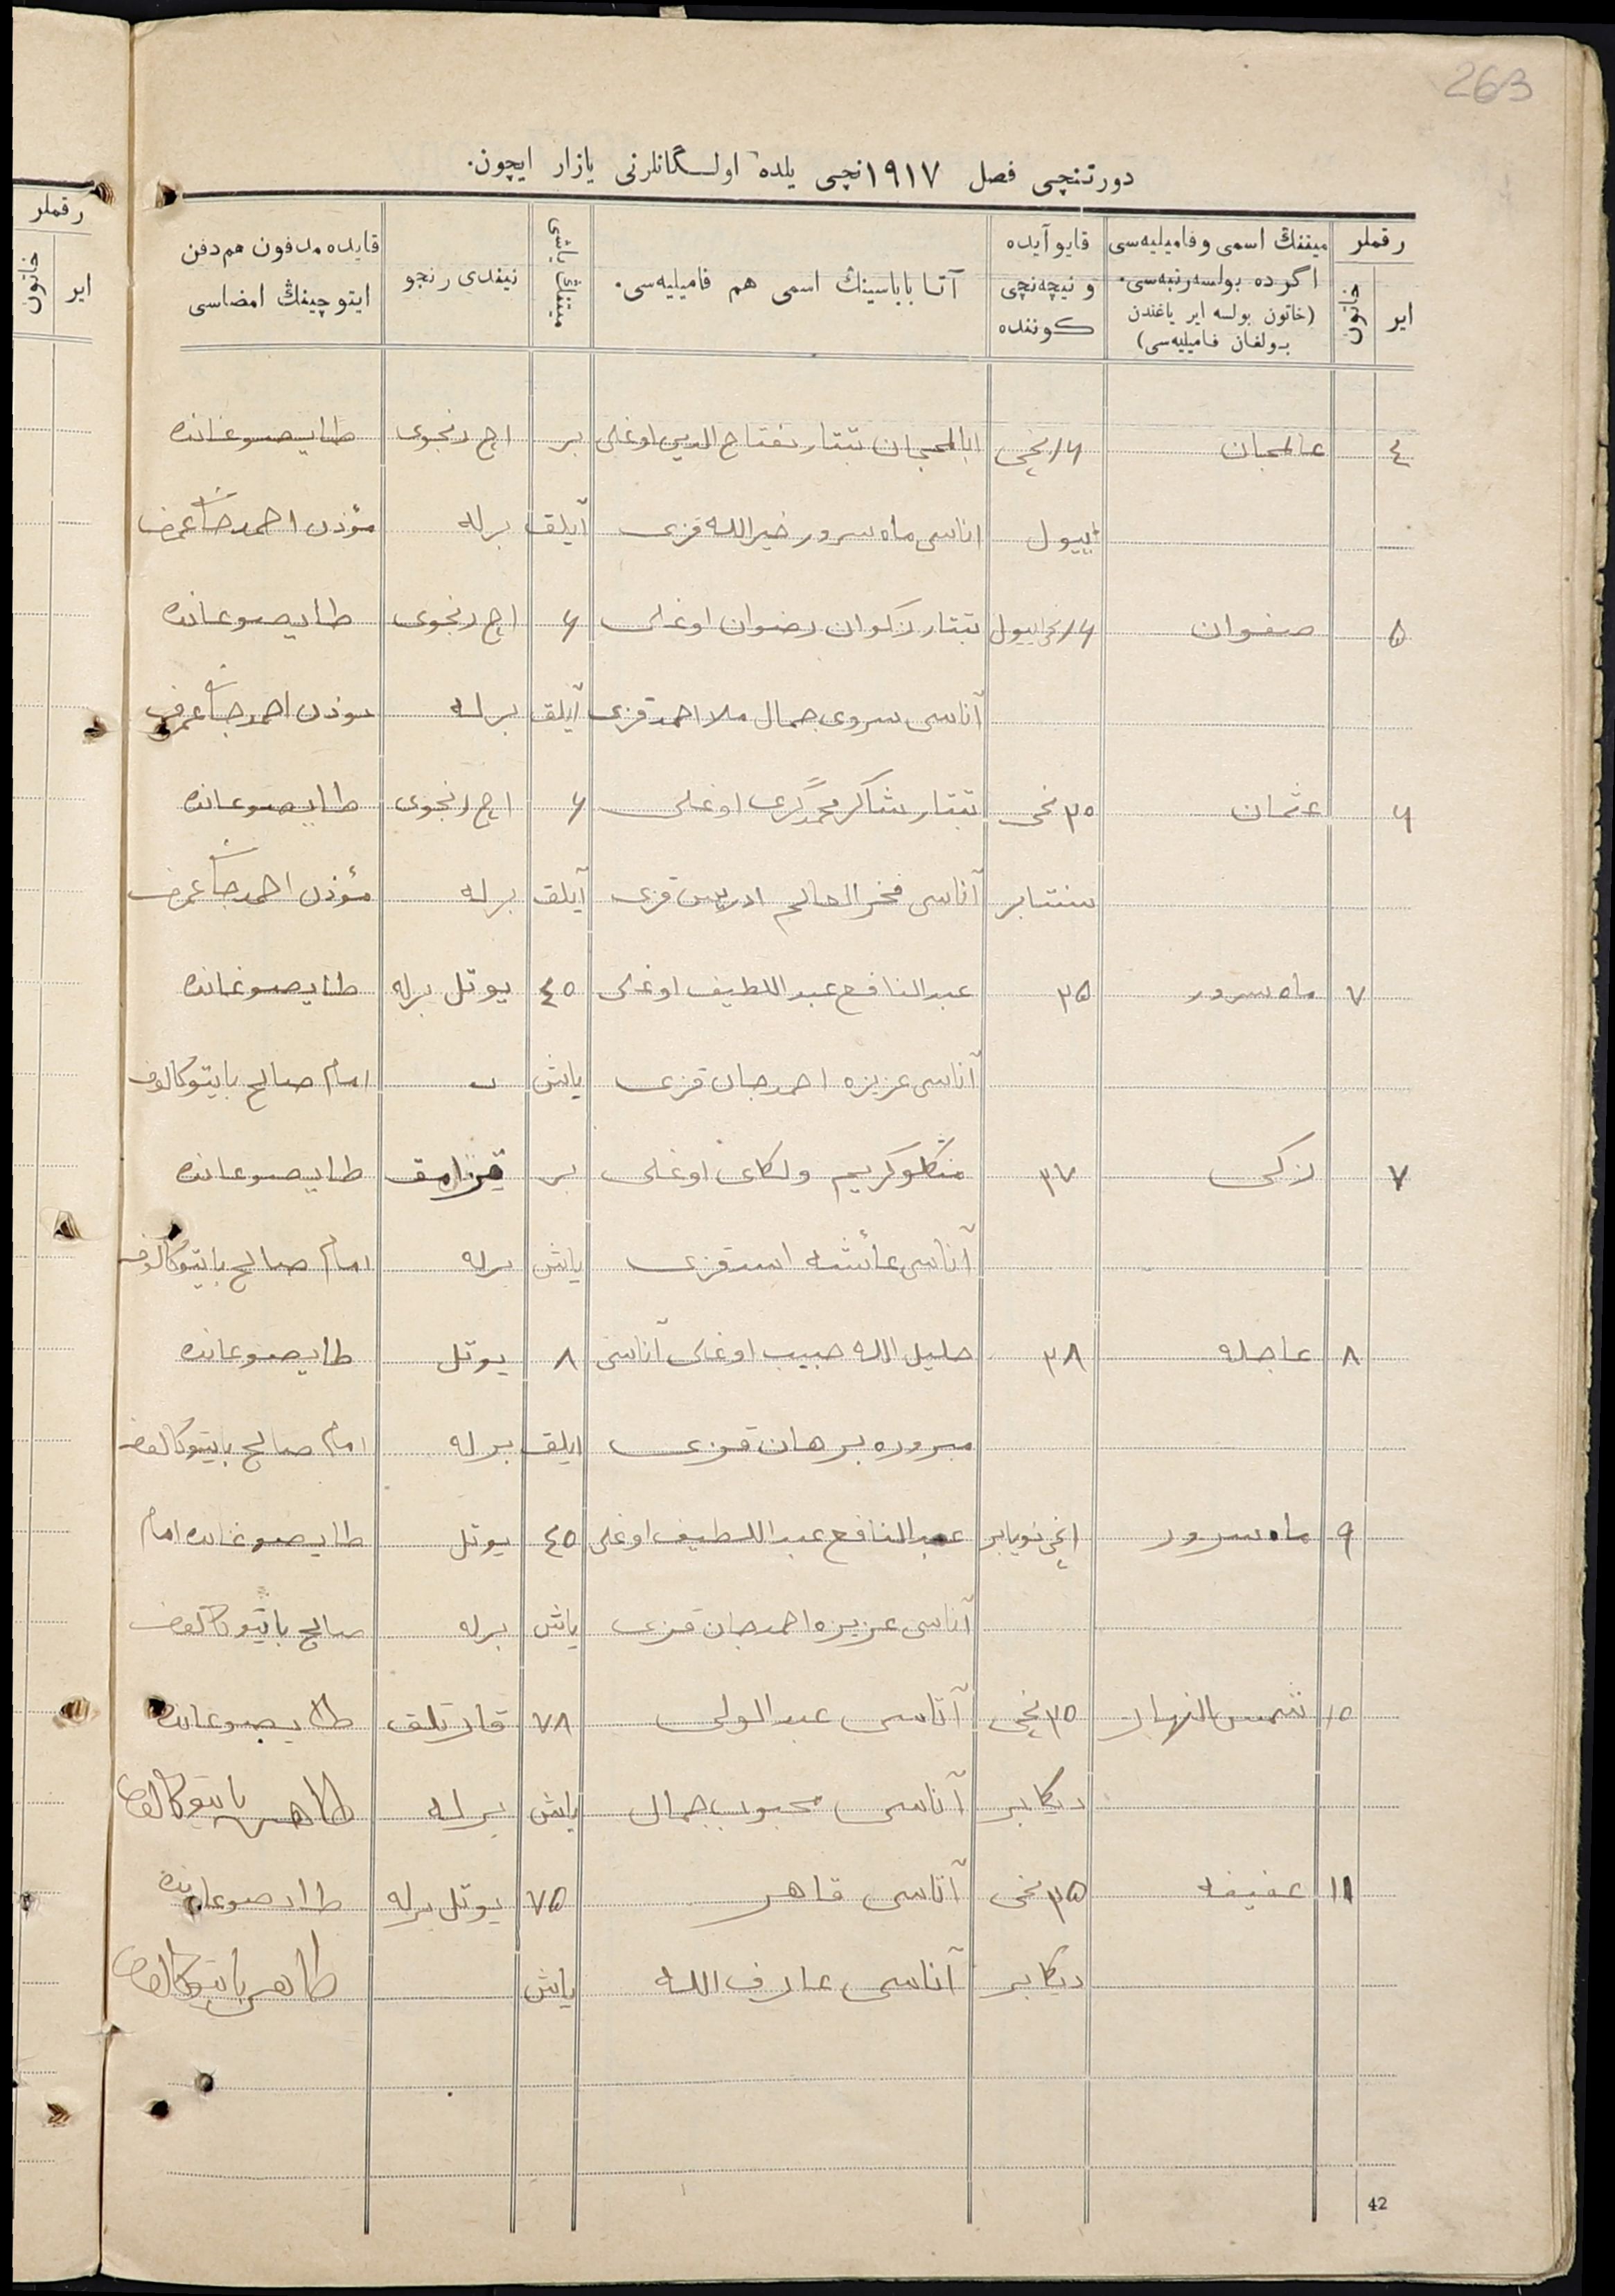 263
دورتنچی فصل ۱۹۱۷نچی یلده اولگانلرنی یازار ایچون.
رقملر
ایر
خاتون
میتنڭ اسمی و فامیلیه‌سی
اگرده بولسه رتبه‌سی.
(خاتون بولسه ایر یاغندن
بولغان فامیلیه‌سی)
قایو آیده
و نیچه‌نچی
کوننده
آتا باباسینڭ اسمی هم فامیلیه‌سی.
میتنڭ یاشی
نیندی رنجو
قایده مدفون هم دفن
ایتوچینڭ امضاسی
رقملر
ایر
خاتون
٤ عالمجان ۱۶نچی تبتار اوغلی بر اچ رنجوی طایصوغانده
اییول اناسی ماه سرور خیرالله قزی آیلق برله مؤذن احمدجان
۵ صفوان ۱۶نچی اییول تبتار زکوان رضوان اوغلی ۶ اچ رنجوی طایصوغانده
آناسی سروی جمال ملا احمد قزی آیلق برله مؤذن احمدجان
۶ عثمان ۲۰نچی تبتار شاکر محمدگری اوغلی ۶ اچ رنجوی طایصوغانده
سنتابر آناسی فخرالعالم ادریس قزی آیلق برله مؤذن احمدجان
۷ ماه سرور ۲۵ عبدالنافع عبداللطیف اوغلی ٤۵ یوتل برله طایصوغانده
آناسی عزیزه احمدجان قزی یاش امام صالح بایتوکالوف
۷ زکی ۲۷ منکلوکریم اوغلی بر قزامق طایصوغانده
آناسی عائشه اسد قزی یاش برله امام صالح بایتوکالوف
۸ عاجله ۲۸ خلیل الله حبیب اوغلی آناسی ۸ یوتل طایصوغانده
مبروره برهان قزی ایلق برله امام صالح بایتوکالوف
۹ ماه سرور انچی نویابر عبدالنافع عبداللطیف اوغلی ٤۵ یوتل طایصوغانده امام
آناسی عزیزه احمدجان قزی یاش برله صالح بایتوکالوف
۱۰ شمس النهار ۲۰نچی آتاسی عبدالولی ۷۸ قارتلق طایصوغانده
دیکابر آناسی محبوب جمال یاش برله طاهر بایتوکالوف
۱۱ عفیفه ۲۵نچی آتاسی قاهر ۷۵ یوتل برله طایصوغانده
دیکابر آناسی عارف الله یاش طاهر بایتوکالوف
42